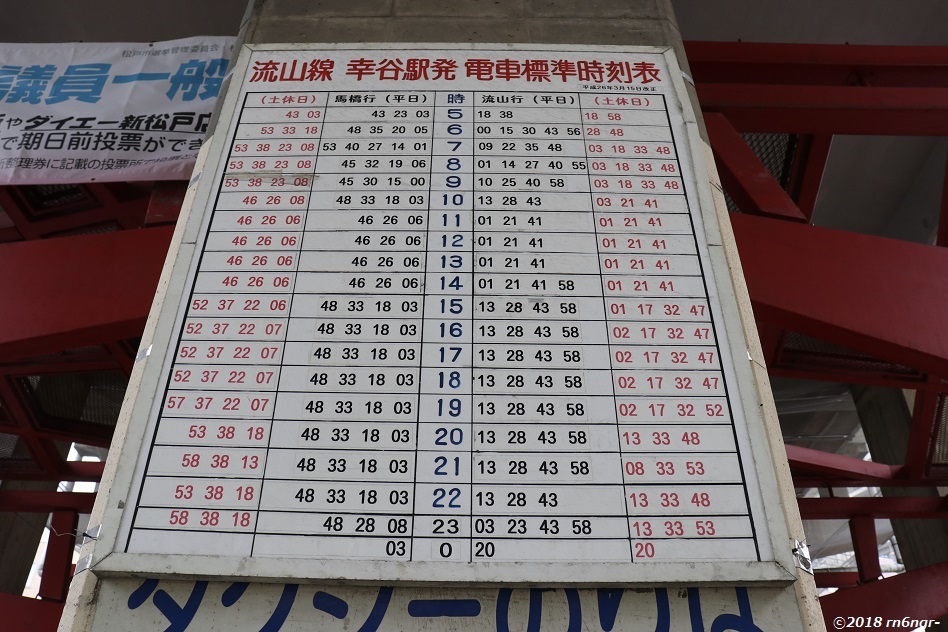 議員一般
ダイエー新松戸店
期日前投票ができ
整理券に記載の投票所
流山線 幸谷駅発 電車標準時刻表
平成26年3月15日改正
(土休日) 馬橋行(平日) 時 流山行(平日) (土休日)
43 03 43 23 03 5 18 38 18 58
53 33 18 48 35 20 05 6 00 15 30 43 56 28 48
53 38 23 08 53 40 27 14 01 7 09 22 35 48 03 18 33 48
53 38 23 08 45 32 19 06 8 01 14 27 40 55 03 18 33 48
53 38 23 08 45 30 15 00 9 10 25 40 58 03 18 33 48
46 26 08 48 33 18 03 10 13 28 43 03 21 41
46 26 06 46 26 06 11 01 21 41 01 21 41
46 26 06 46 26 06 12 01 21 41 01 21 41
46 26 06 46 26 06 13 01 21 41 01 21 41
46 26 06 46 26 06 14 01 21 41 58 01 21 41
52 37 22 06 48 33 18 03 15 13 28 43 58 01 17 32 47
52 37 22 07 48 33 18 03 16 13 28 43 58 02 17 32 47
52 37 22 07 48 33 18 03 17 13 28 43 58 02 17 32 47
52 37 22 07 48 33 18 03 18 13 28 43 58 02 17 32 47
57 37 22 07 48 33 18 03 19 13 28 43 58 02 17 32 52
53 38 18 48 33 18 03 20 13 28 43 58 13 33 48
58 38 13 48 33 18 03 21 13 28 43 58 08 33 53
53 38 18 48 33 18 03 22 13 28 43 13 33 48
58 38 18 48 28 08 23 03 23 43 58 13 33 53
03 0 20 20
タクシーのりば
©2018 rn6ngr-